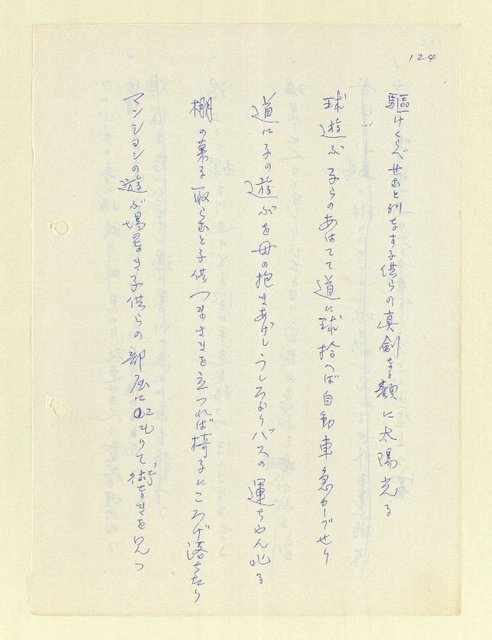 124
駆けくらべせむと列なす子供らの真剣な顔に太陽光る
球遊ぶ子らのあはてて道に球拾へば自動車急カーブせり
道に子の遊ぶを母の抱きあげしうしろよりバスの運ちやん叱る
棚の菓子取らむと子供つまさきを立つれば椅子ところげ落ちたり
マンシヨンの遊ぶ場なき子供らの部屋にこもりて